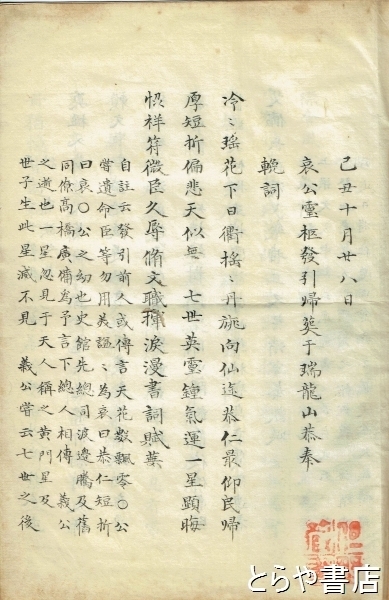 己丑十月廿八日
哀公靈柩發引歸葬于瑞龍山恭奉
輓詞
冷〻瑤花下日衢搖〻丹旐向仙逵恭仁最仰民歸
厚短折偏悲天似無 七世英靈鍾氣運一星顯晦
恠祥符微臣久辱脩文職揮淚漫書詞賦藁
自註云發引前人或傳言天花數飄零〇公
嘗遺命臣等勿用美謳〻為哀曰恭仁短折
曰哀〇公之幼也史館先總司渡邊騰及舊
同僚高橋廣備為予言下總人相傳 義公
之逝也一星忽見于天人稱之黄門星及
世子生此星滅不見 義公嘗云七世之後
とらや書店